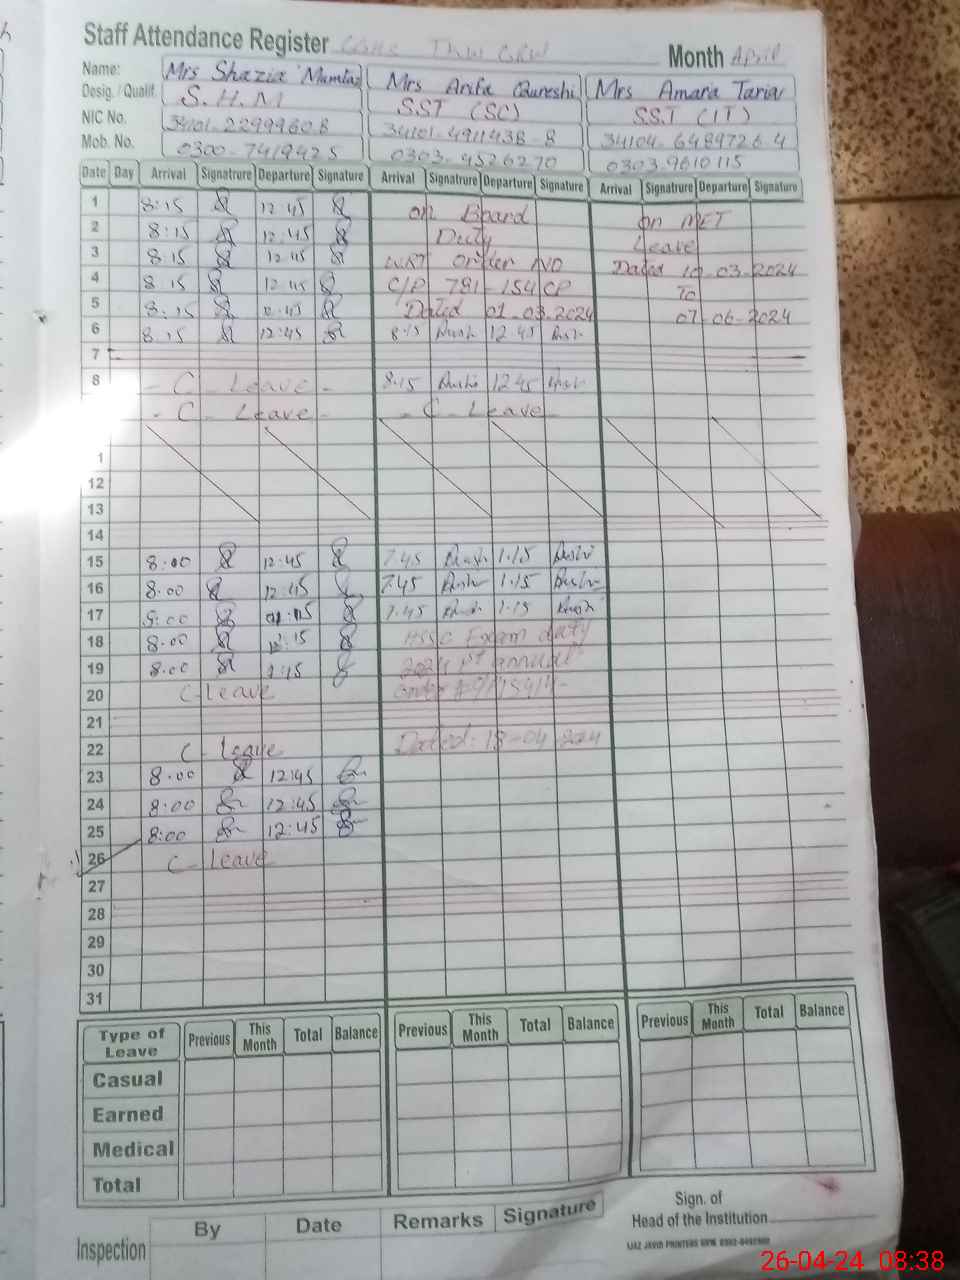 Staff Attendance Register
Month April
Name: Mrs Shazia Mumtaz Mrs Arifa Qureshi Mrs Amara Tariq
Desig. / Qualif. S.H.M SST (SC) SST (IT)
NIC No. 34101-2299960-8 34101-4911438-8 34104-6489726-4
Mob. No. 0300-7419425 0303-4526270 0303-9610115
Date Day Arrival Signatrure Departure Signature Arrival Signatrure Departure Signature Arrival Signatrure Departure Signature
1 8:15 12:45 on Board on MET
2 8:15 12:45 Duty Leave
3 8:15 12:45 order NO Dated 10-03-2024
4 8:15 12:45 C/P 781-154 CP To
5 8:15 Dated 01.03.2024 07-06-2024
6 8:15 12:45 8:15 12-45
7
8 - C - Leave - 8:15 12 45
- C - Leave - - C - Leave
1
12
13
14
15 8:00 12:45 7.45 1.15
16 8.00 12:45 7.45 1.15
17 8:00 7.45 1.15
18 8.00 HSSC Exam duty
19 8.00 2024 1st annual
20 C-Leave
21
22 C - Leave Dated:- 18-04-2024
23 8.00 12:45
24 8:00 12:45
25 8:00 12:45
26 C - Leave
27
28
29
30
31
Type of Leave Previous This Month Total Balance Previous This Month Total Balance Previous This Month Total Balance
Casual
Earned
Medical
Total
Inspection By Date Remarks Signature
Sign. of
Head of the Institution
26-04-24 08:38